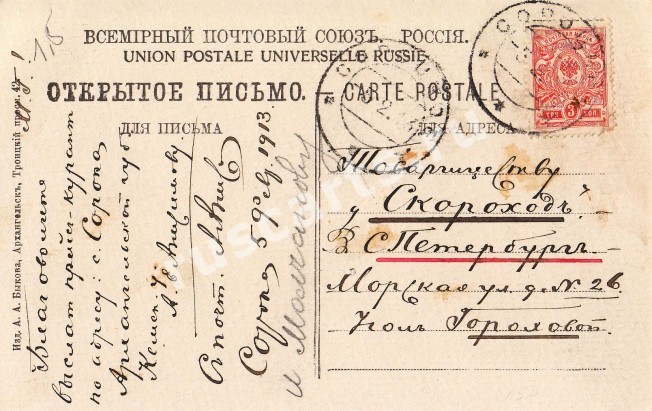 ВСЕМІРНЫЙ ПОЧТОВЫЙ СОЮЗЪ. РОССІЯ.
UNION POSTALE UNIVERSELLE RUSSIE
ОТКРЫТОЕ ПИСЬМО. — CARTE POSTALE
ДЛЯ ПИСЬМА
ДЛЯ АДРЕСА
Изд. А. А. Быкова, Архангельскъ, Троицкій просп. 42
М. Г.!
Благоволите
выслат прейс-курант
по адресу: с. Сорока
Архангельской губ
Кемск. у.
Сорока 5 февр. 1913.
и Молчанову
1,5
Товариществу
„Скороходъ"
В С Петербургъ
Морская ул д. № 26
Уголъ Гороховой.
СОРО
3
ТРИ КОП